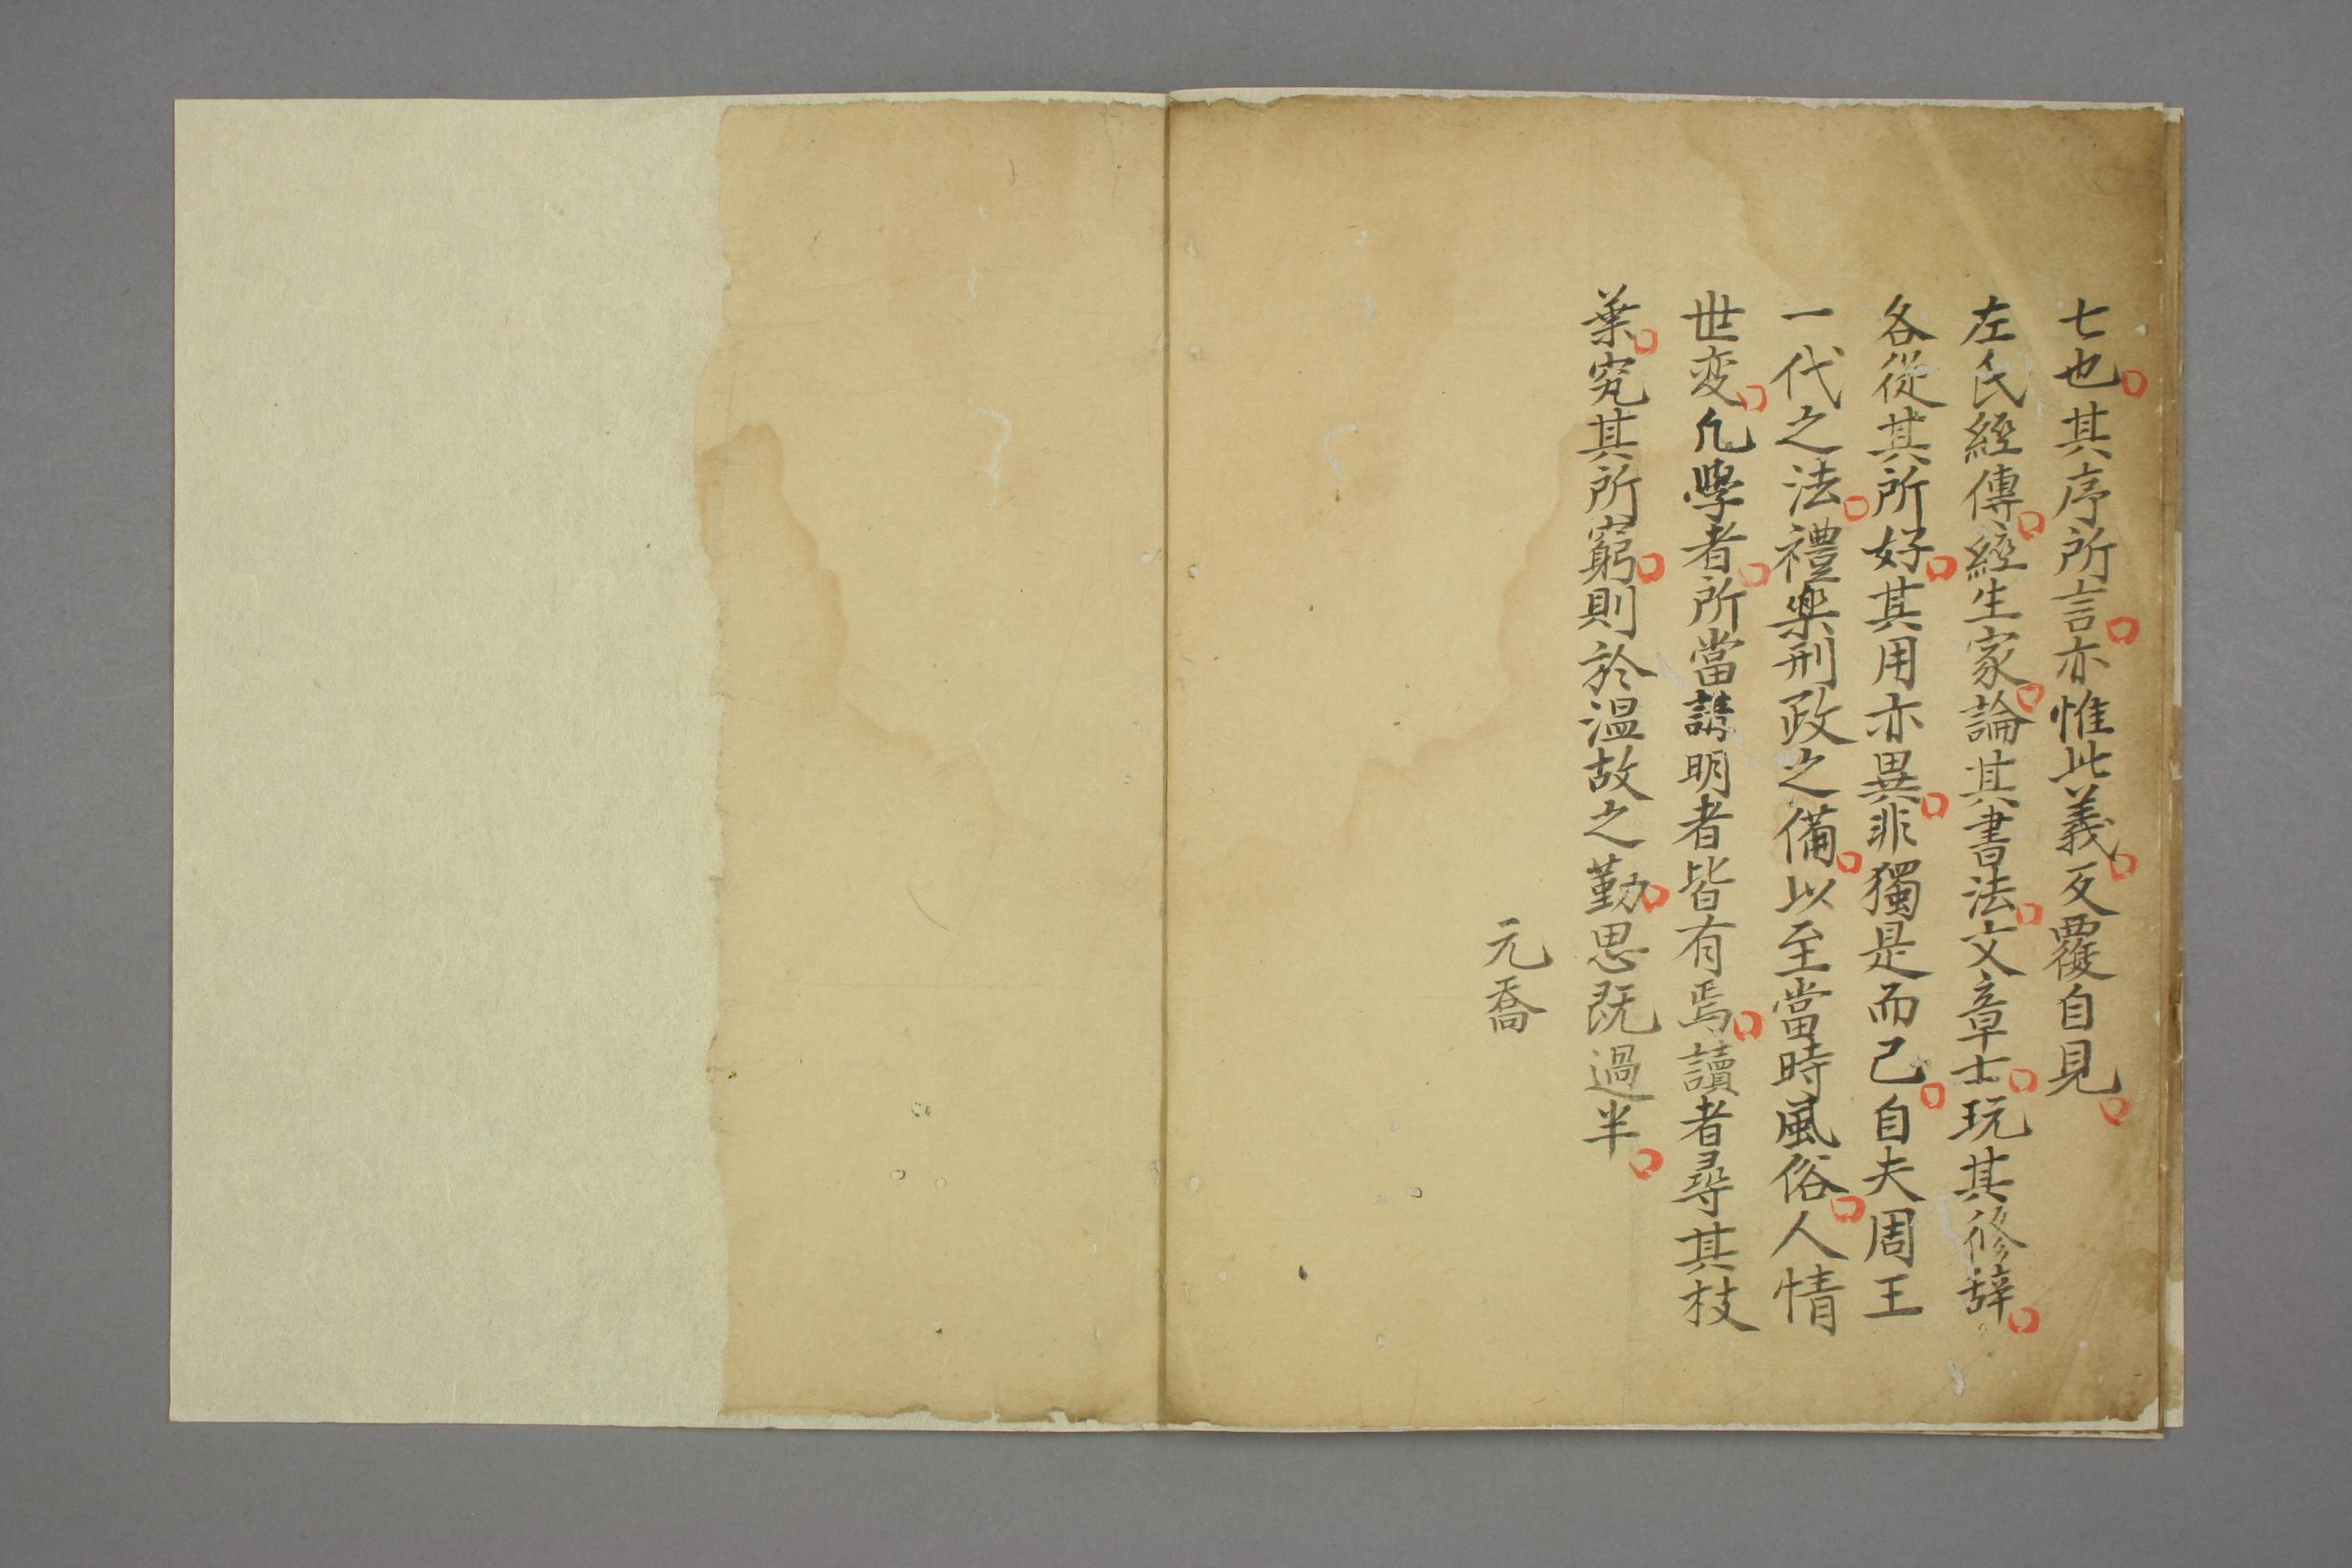 七也。其序所言。亦惟此義。反覆自見。
左氏經傳。經生家。論其書法。文章士。玩其修辞。
各從其所好。其用亦異。非獨是而已。自夫周王
一代之法。禮樂刑政之備。以至當時風俗。人情
世変。凡學者。所當講明者皆有焉。讀者尋其枝
葉。究其所窮。則於温故之勤。思既過半。
元喬